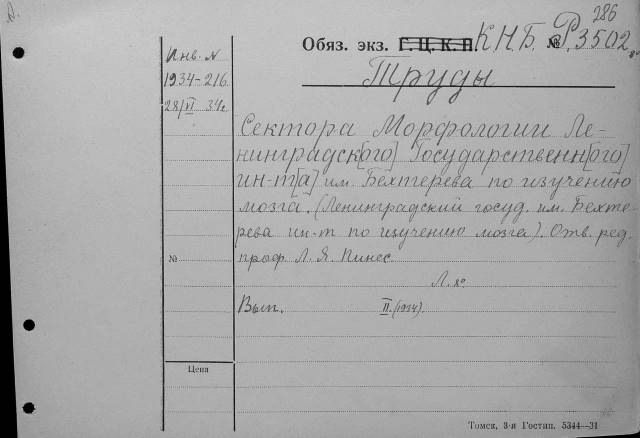 286
Обяз. экз. Г. Ц. К. П. К.Н.Б. № Р. 3502
Инв. №
1934-216
28/VI 34г.
Труды
Сектора Морфологии Ле-
нинградск[ого] Государственн[ого]
ин-т[а] им. Бехтерева по изучению
мозга. (Ленинградский госуд. им. Бехте-
рева ин-т по изучению мозга). Отв. ред.
№
проф. Л. Я. Пинес.
Л. 8°
Вып. II. (1934).
Цена
Томск, 3-я Гостип. 5344—31